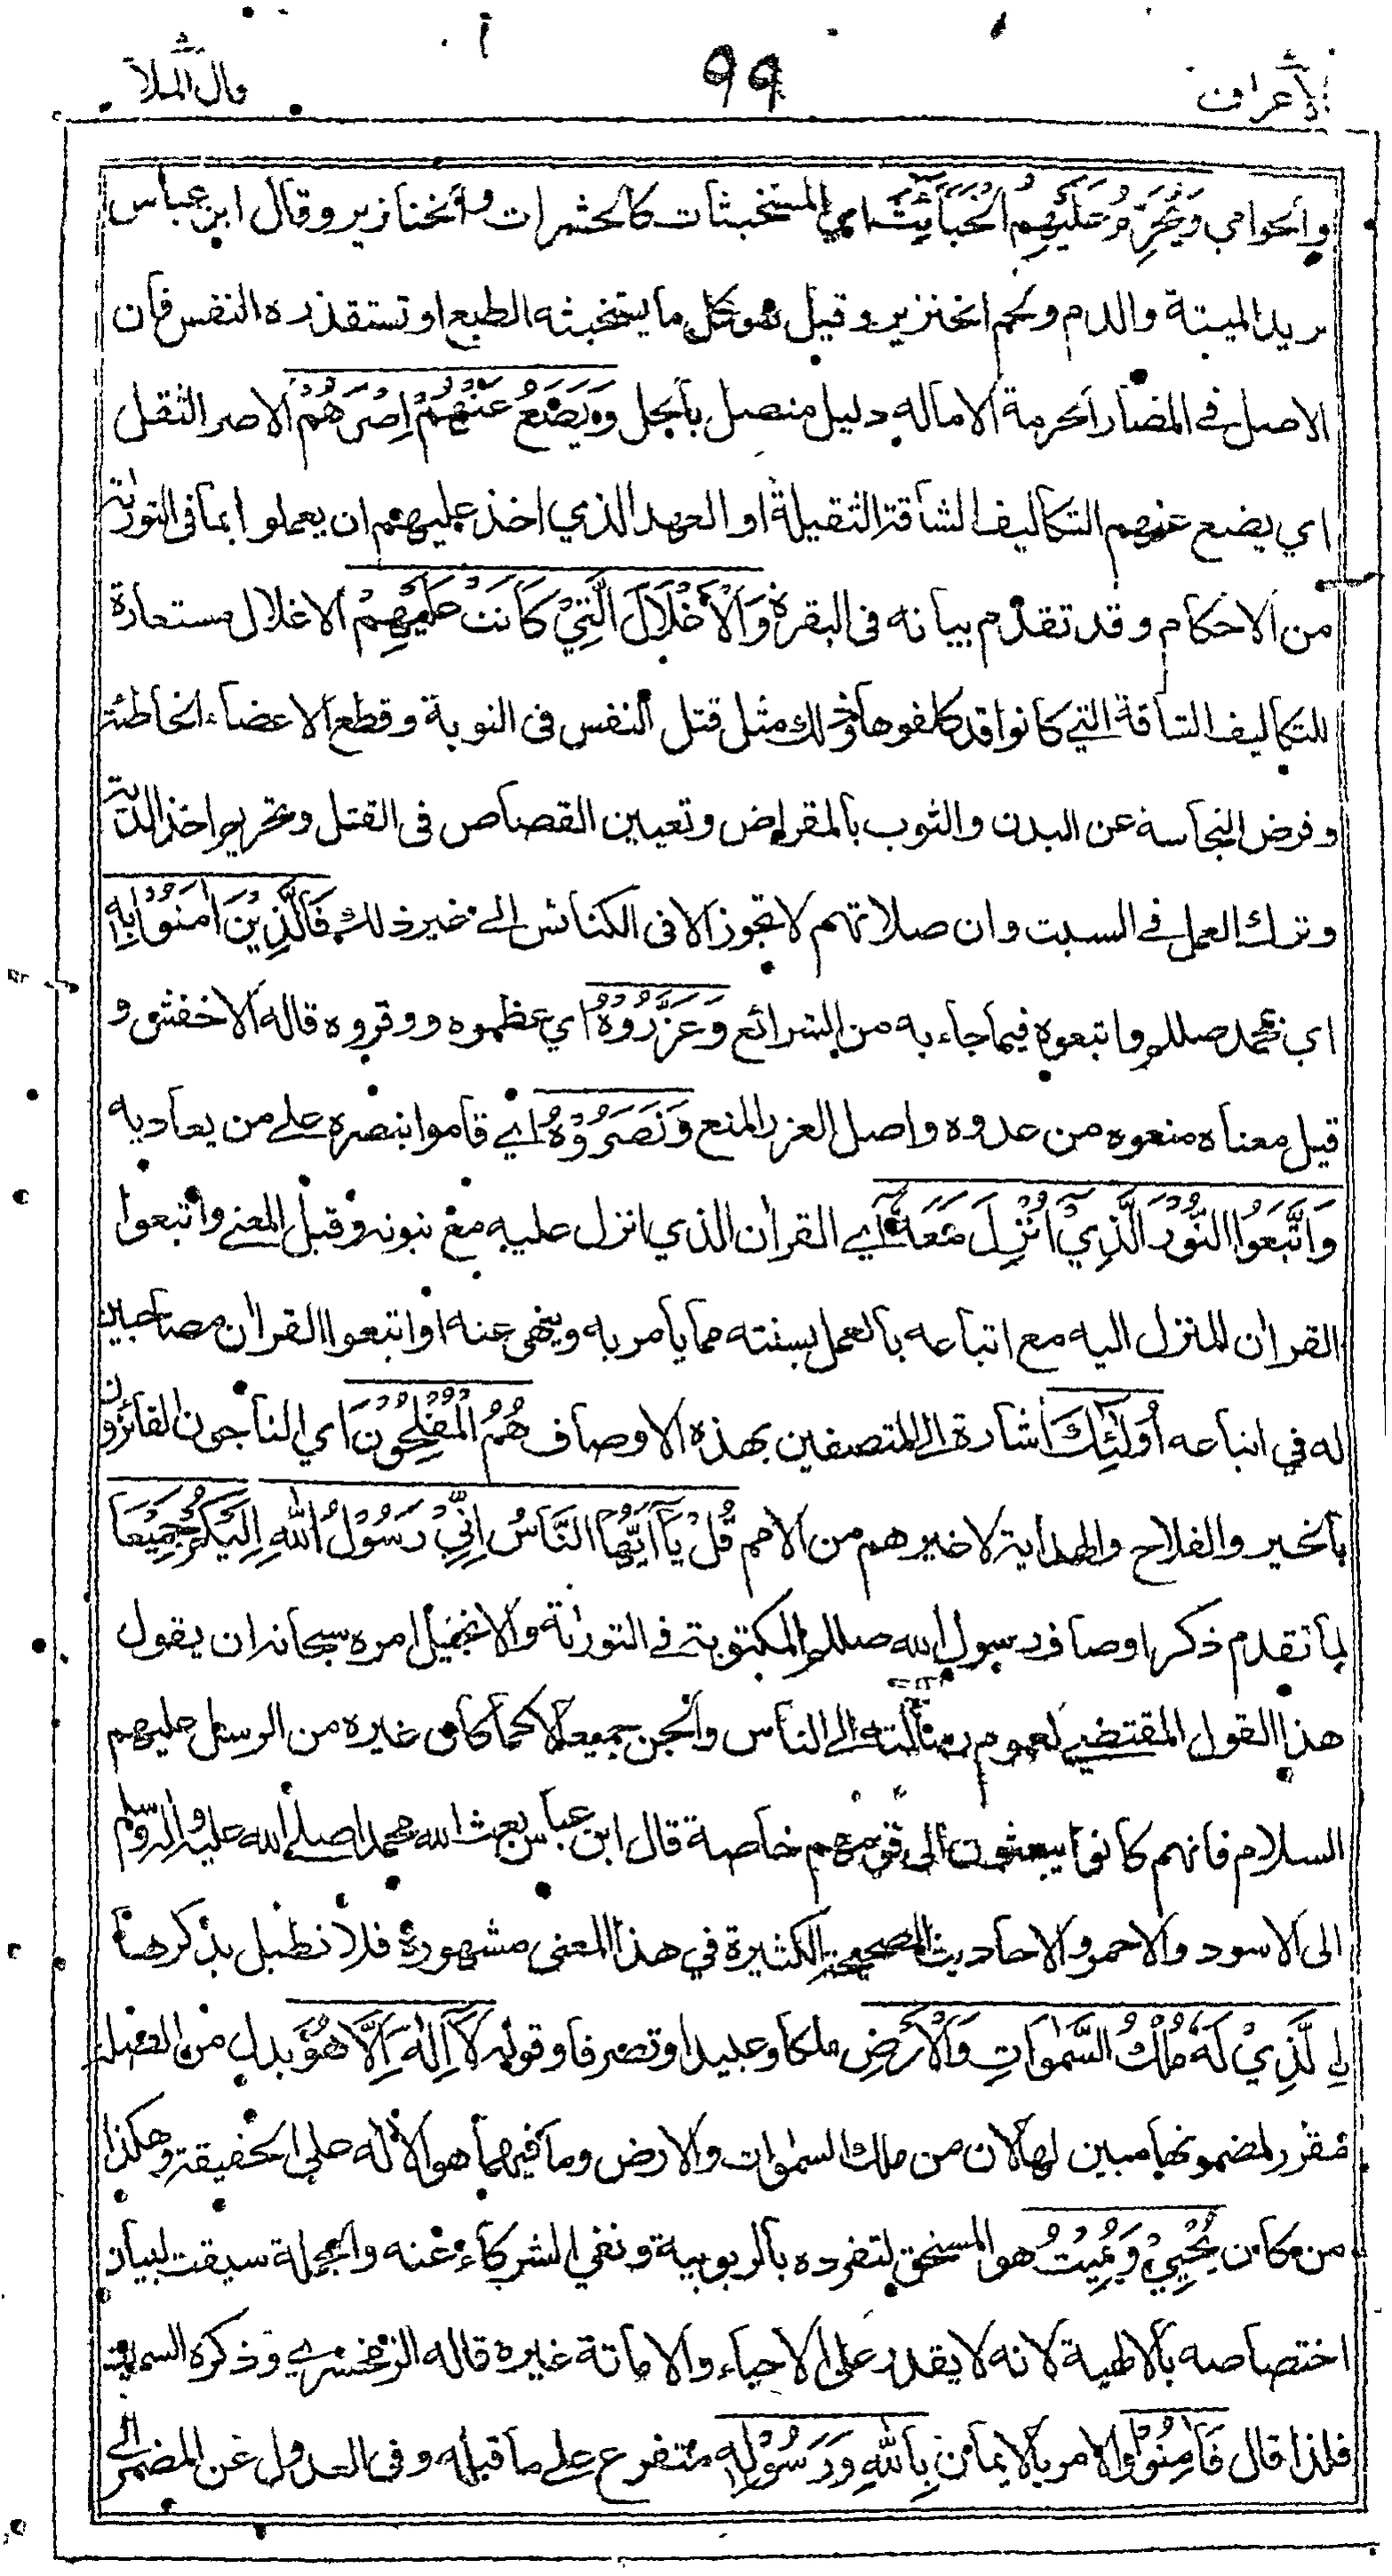 الأعراف ٩٩ قال الملأ
والحوامي وَيُحَرِّمُ عَلَيْهِمُ الْخَبَآئِثَ اي المستخبثات كالحشرات والخنازير وقال ابن عباس
يريد الميتة والدم ولحم الخنزير وقيل هو كل ما يستخبثه الطبع او تستقذره النفس فان
الاصل في المضار الحرمة الا ماله دليل متصل بالحل وَيَضَعُ عَنْهُمْ اِصْرَهُمْ الاصر الثقل
اي يضع عنهم التكاليف الشاقة الثقيلة او العهد الذي اخذ عليهم ان يعملوا بما في التورٰىة
من الاحكام وقد تقدم بيانه في البقرة وَالْاَغْلَالَ الَّتِيْ كَانَتْ عَلَيْهِمْ الاغلال مستعارة
للتكاليف الشاقة التي كانوا قد كلفوها وذلك مثل قتل النفس في التوبة وقطع الاعضاء الخاطئة
وفرض النجاسة عن البدن والثوب بالمقراض وتعيين القصاص في القتل وتحريم اخذ الدية
وترك العمل في السبت وان صلاتهم لا تجوز الا في الكنائس الى غير ذلك فَالَّذِيْنَ اٰمَنُوْا بِهٖ
اي بمحمد صللم واتبعوه فيما جاء به من الشرائع وَعَزَّرُوْهُ اي عظموه ووقروه قاله الاخفش و
قيل معناه منعوه من عدوه واصل العزر المنع وَنَصَرُوْهُ اي قاموا بنصره على من يعاديه
وَاتَّبَعُوا النُّوْرَ الَّذِيْٓ اُنْزِلَ مَعَهٗٓ اي القران الذي انزل عليه مع نبوته وقيل المعنى واتبعوا
القران المنزل اليه مع اتباعه بالعمل بسنته مما يامر به وينهى عنه او اتبعوا القران مصاحبين
له في اتباعه اُولٰٓئِكَ اشارة الى المتصفين بهذه الاوصاف هُمُ الْمُفْلِحُوْنَ اي الناجون الفائزون
بالخير والفلاح والهداية لا غيرهم من الامم قُلْ يٰٓاَيُّهَا النَّاسُ اِنِّيْ رَسُوْلُ اللهِ اِلَيْكُمْ جَمِيْعًا
لما تقدم ذكر اوصاف رسول الله صللم المكتوبة في التورٰىة والانجيل امره سبحانه ان يقول
هذا القول المقتضي لعموم رسالته الى الناس والجن جميعا لا كما كان غيره من الرسل عليهم
السلام فانهم كانوا يبعثون الى قومهم خاصة قال ابن عباس بعث الله محمدا صلى الله عليه واله وسلم
الى الاسود والاحمر والاحاديث الصحيحة الكثيرة في هذا المعنى مشهورة فلا نطيل بذكرها
اِلَّذِيْ لَهٗ مُلْكُ السَّمٰوَاتِ وَالْاَرْضِ ملكا وعبيدا وتصرفا وقوله لَآ اِلٰهَ اِلَّا هُوَ بدل من الصلة
مقرر لمضمونها مبين لها لان من ملك السمٰوات والارض وما فيهما هو الاله على الحقيقة وهكذا
من كان يُحْيِيْ وَيُمِيْتُ هو المستحق لتفرده بالربوبية ونفي الشركاء عنه والجملة سيقت لبيان
اختصاصه بالالهية لانه لا يقدر على الاحياء والاماتة غيره قاله الزمخشري وذكره السمين
فلذا قال فَاٰمِنُوْا والامر بالايمان بِاللهِ وَرَسُوْلِهِ متفرع على ما قبله وفي العدول عن المضمر الى